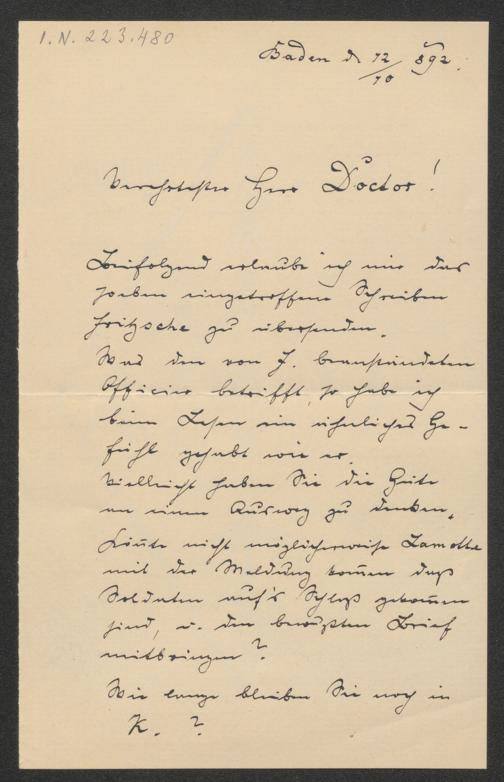 I.N. 223.480
Baden d 12/10 892.
Verehrtester Herr Doctor!
Beifolgend erlaube ich mir das
soeben eingetroffene Schreiben
Fritzsche zu übersenden.
Was den von J. beanstandeten
Officier betrifft, so habe ich
beim Lesen ein ähnliches Ge-
fühl gehabt wie er.
Vielleicht haben Sie die Güte
an einen Ausweg zu denken.
Könnte nicht möglicherweise Lamotte
mit der Meldung kom̅en daß
Soldaten auf's Schloß gekom̅en
sind, u. den bewußten Brief
mitbringen?
Wie lange bleiben Sie noch in
K. ?